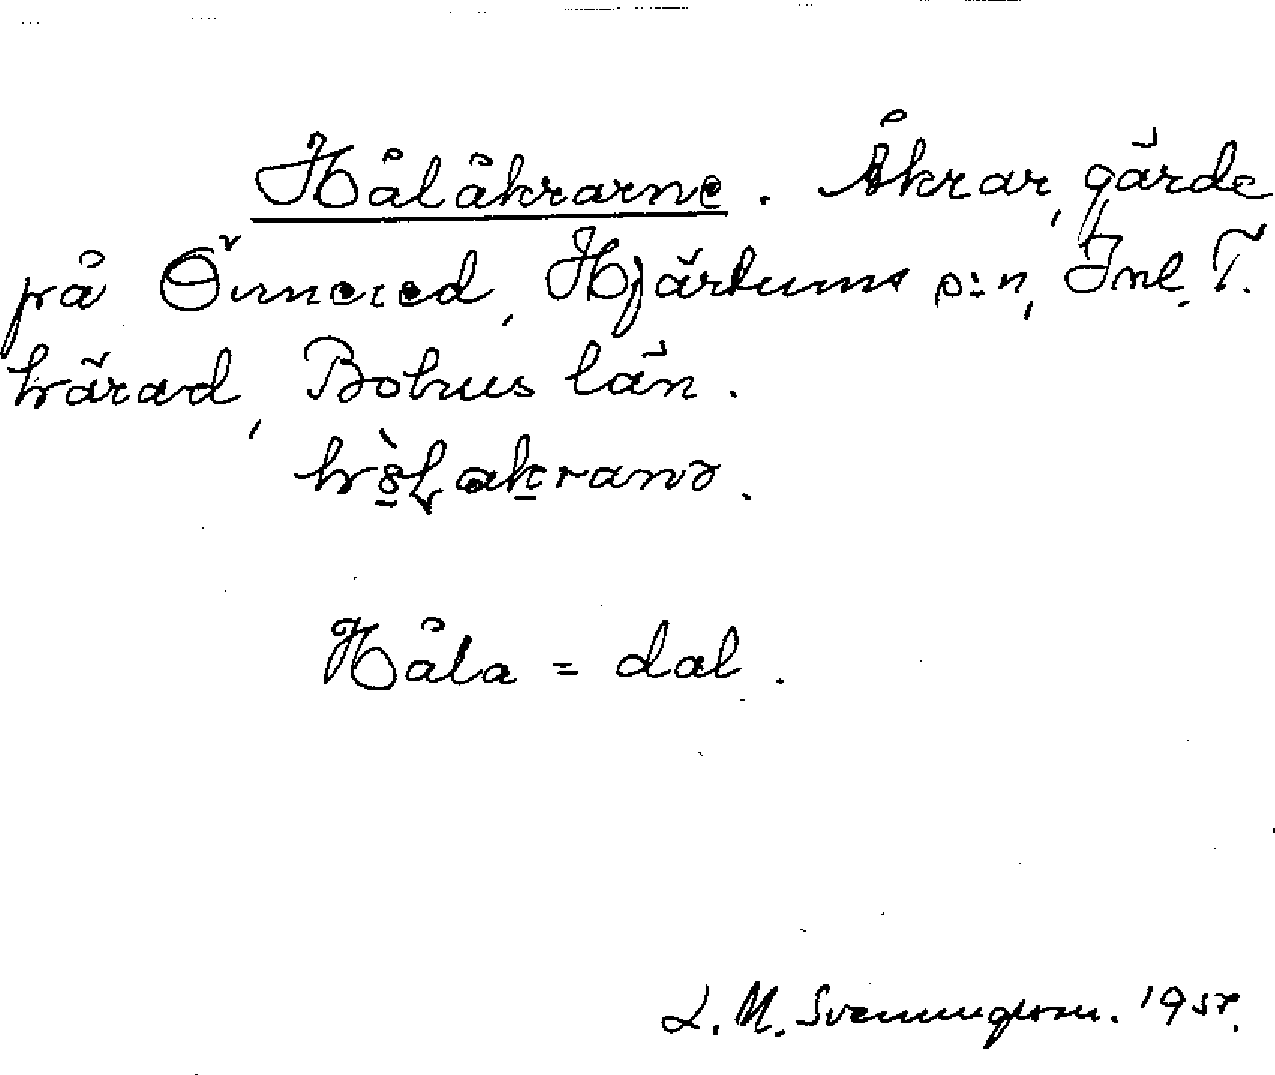 Hålåkrarne. Åkrar, gärde
på Örnered, Hjärtums s:n, Inl. T.
härad, Bohus län.
Håla = dal.
L. M. Svenungsson.